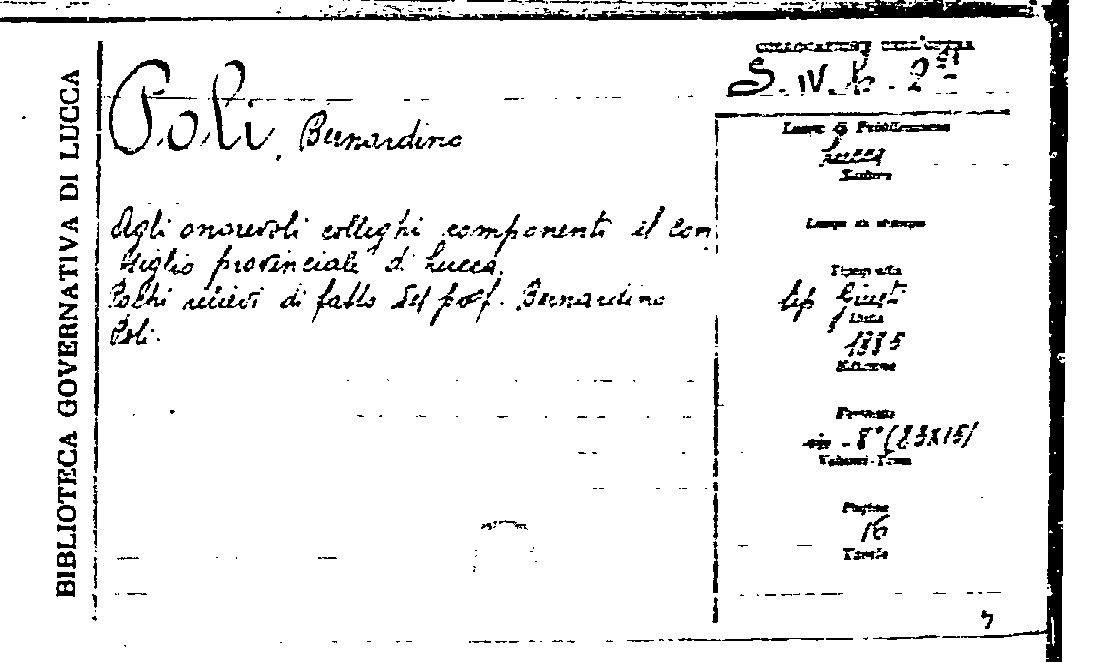 BIBLIOTECA GOVERNATIVA DI LUCCA
COLLOCAZIONE DELL'OPERA
S. IV. b. 2
Poli, Bernardino
Agli onorevoli colleghi componenti il Con
siglio provinciale di Lucca.
Pochi rilievi di fatto del prof. Bernardino
Poli.
Luogo di Pubblicazione
Lucca
Editore
Luogo di stampa
Tipografia
tip Giusti
Data
1885
Edizione
Formato
in - 8° (23x15)
Volumi-Tomi
Pagine
16
Tavole